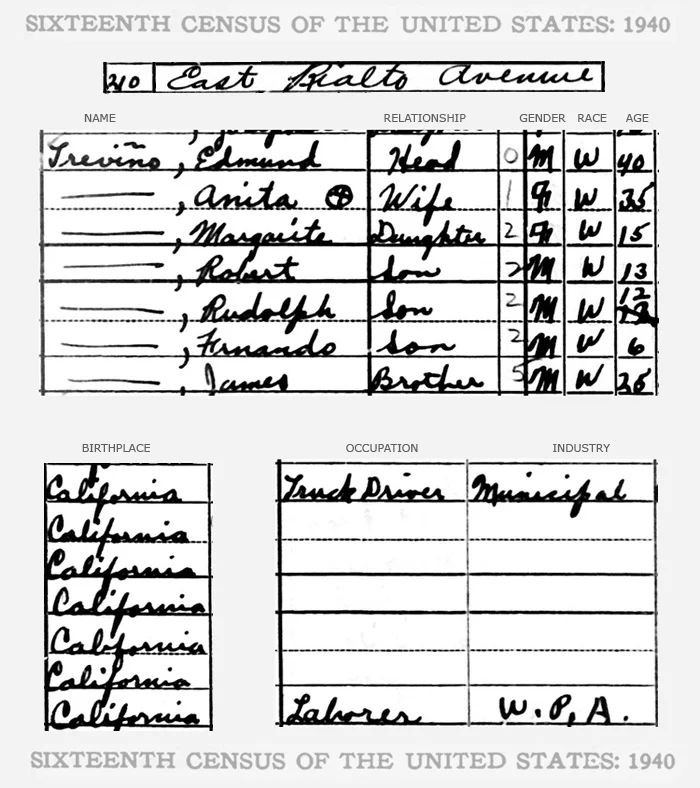 SIXTEENTH CENSUS OF THE UNITED STATES: 1940
210 East Rialto Avenue
NAME RELATIONSHIP GENDER RACE AGE
Treviño, Edmund Head 0 M W 40
——, Anita Wife 1 F W 35
——, Margarite Daughter 2 F W 15
——, Robert Son 2 M W 13
——, Rudolph Son 2 M W 12
——, Frnando Son 2 M W 6
——, James Brother 5 M W 26
BIRTHPLACE OCCUPATION INDUSTRY
California Truck Driver Municipal
California
California
California
California
California
California Laborer W.P.A.
SIXTEENTH CENSUS OF THE UNITED STATES: 1940